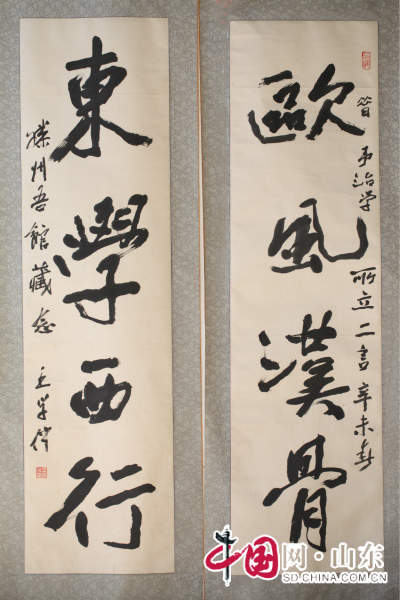 歐風漢骨
昔予治学所立二言辛未春
東學西行
滕州吾館藏念
王学仲
中国网·山东
SD.CHINA.COM.CN